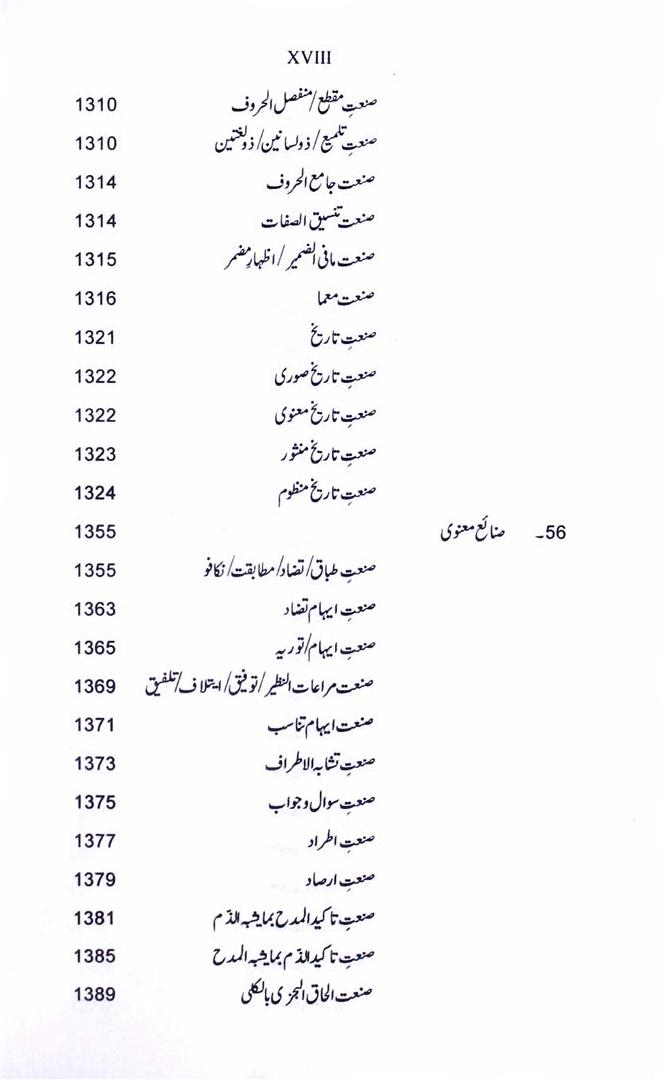 XVIII
صنعتِ مقطع/منفصل الحروف 1310
صنعتِ تلمیع/ذولسانین/ذولغتین 1310
صنعت جامع الحروف 1314
صنعت تنسیق الصفات 1314
صنعت مافی الضمیر/اظہارِ مضمر 1315
صنعت معما 1316
صنعتِ تاریخ 1321
صنعتِ تاریخ صوری 1322
صنعتِ تاریخ معنوی 1322
صنعتِ تاریخ منثور 1323
صنعتِ تاریخ منظوم 1324
56۔ صنائع معنوی 1355
صنعتِ طباق/تضاد/مطابقت/تکافو 1355
صنعتِ ایہام تضاد 1363
صنعتِ ایہام/توریہ 1365
صنعت مراعات النظیر/توفیق/ایتلاف/تلفیق 1369
صنعت ایہام تناسب 1371
صنعتِ تشابہ الاطراف 1373
صنعتِ سوال و جواب 1375
صنعتِ اطراد 1377
صنعتِ ارصاد 1379
صنعتِ تاکید المدح بمایشبہ الذّم 1381
صنعتِ تاکید الذّم بمایشبہ المدح 1385
صنعت الحاق الجزی بالکلی 1389